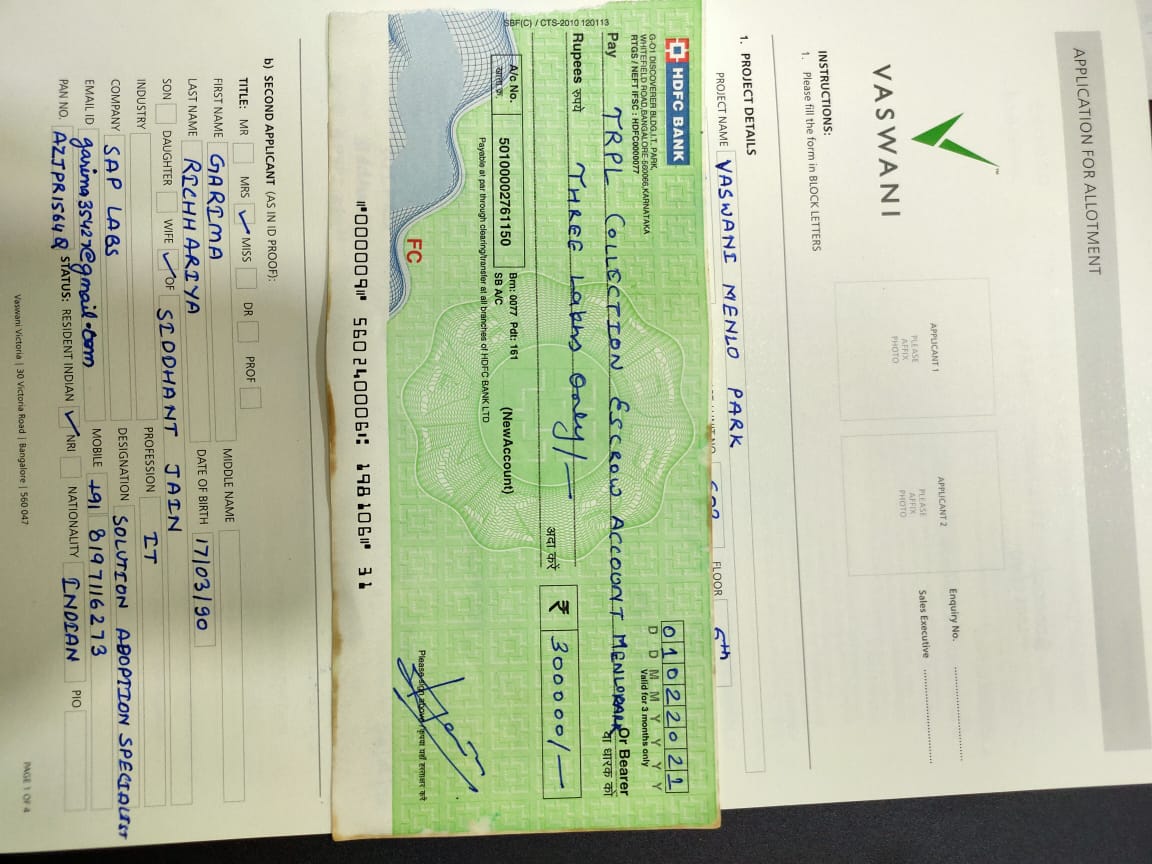 APPLICATION FOR ALLOTMENT
VASWANI
™
Enquiry No.
Sales Executive
APPLICANT 1
PLEASE
AFFIX
PHOTO
APPLICANT 2
PLEASE
AFFIX
PHOTO
INSTRUCTIONS:
1. Please fill the form in BLOCK LETTERS
1. PROJECT DETAILS
PROJECT NAME VASWANI MENLO PARK FLOOR 6th
SBF(C) / CTS-2010 120113
HDFC BANK
G-01 DISCOVERER BLDG,I.T. PARK,
WHITEFIELD ROAD,BANGALORE-560066,KARNATAKA
RTGS / NEFT IFSC : HDFC0000077
01022021
D D M M Y Y Y Y
Valid for 3 months only
Pay TRPL COLLECTION ESCROW ACCOUNT MENLOPARK Or Bearer
या धारक को
Rupees रुपये THREE Lakhs Only/—
अदा करें ₹ 300000/—
A/c No. 50100002761150
Brn: 0077 Pdt: 161
SB A/C (NewAccount)
Payable at par through clearing/transfer at all branches of HDFC BANK LTD
FC
Please sign above
⑈000009⑈ 560240006⑆ 198106⑈ 31
b) SECOND APPLICANT (AS IN ID PROOF):
TITLE: MR MRS ✓ MISS DR PROF
FIRST NAME GARIMA MIDDLE NAME
LAST NAME RICHHARIYA DATE OF BIRTH 17/03/90
SON DAUGHTER WIFE ✓ OF SIDDHANT JAIN
INDUSTRY PROFESSION IT
COMPANY SAP LABS DESIGNATION SOLUTION ADOPTION SPECIALIST
EMAIL ID garima35427@gmail.com MOBILE +91 8197116273
PAN NO. AZTPR1564Q STATUS: RESIDENT INDIAN ✓ NRI NATIONALITY INDIAN PIO
Vaswani Victoria | 30 Victoria Road | Bangalore | 560 047
PAGE 1 OF 4